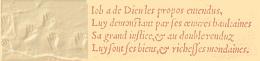 Iob a de Dieu les propos entendus,
Luy demonstrant par ses œuures haultaines
Sa grand iustice, & au double rendus
Luy sont ses biens, & richesses mondaines.